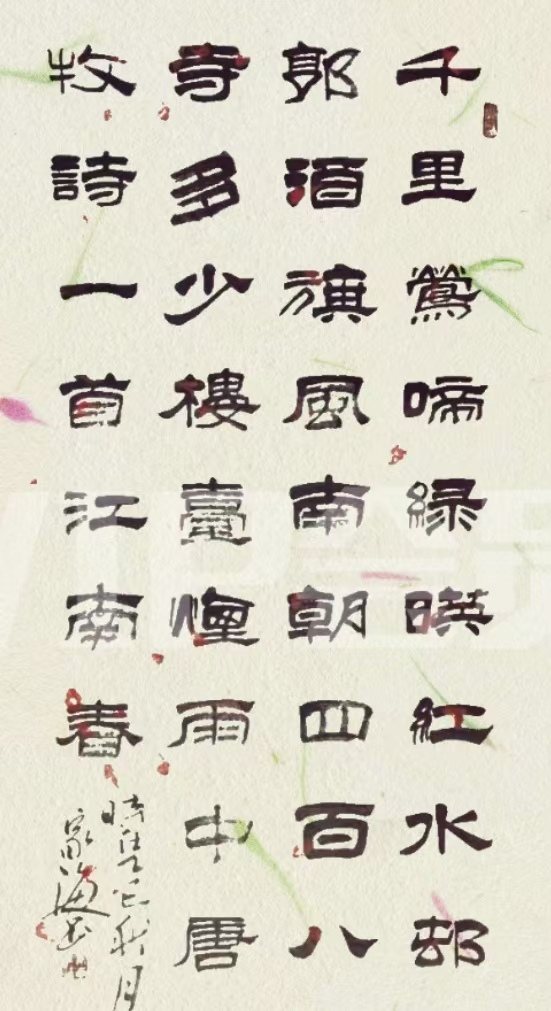 千里鶯啼綠暎紅水邨
郭酒旗風南朝四百八
寺多少樓臺煙雨中唐
牧詩一首江南春
時在乙巳秋月
家海書
VIP